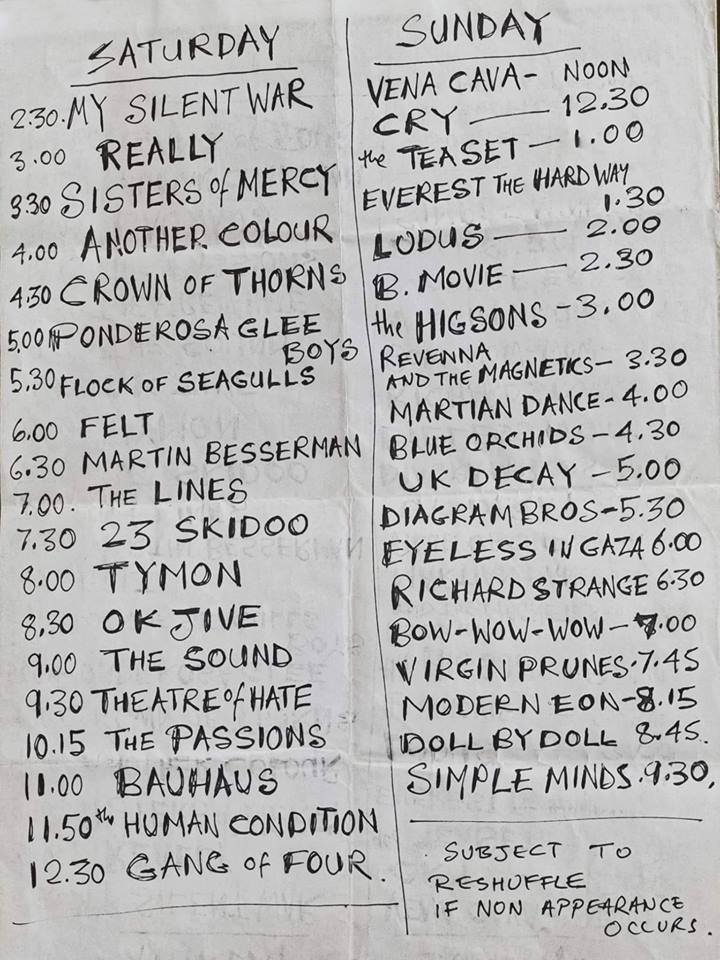 SATURDAY
2.30. MY SILENT WAR
3.00 REALLY
3.30 SISTERS of MERCY
4.00 ANOTHER COLOUR
4.30 CROWN OF THORNS
5.00 PONDEROSA GLEE
BOYS
5.30 FLOCK OF SEAGULLS
6.00 FELT
6.30 MARTIN BESSERMAN
7.00. THE LINES
7.30 23 SKIDOO
8.00 TYMON
8.30 OK JIVE
9.00 THE SOUND
9.30 THEATRE of HATE
10.15 THE PASSIONS
11.00 BAUHAUS
11.50 the HUMAN CONDITION
12.30 GANG OF FOUR.
SUNDAY
VENA CAVA - NOON
CRY — 12.30
the TEASET — 1.00
EVEREST THE HARD WAY
1.30
LUDUS — 2.00
B. MOVIE — 2.30
the HIGSONS - 3.00
REVENNA
AND THE MAGNETICS - 3.30
MARTIAN DANCE - 4.00
BLUE ORCHIDS - 4.30
UK DECAY - 5.00
DIAGRAM BROS - 5.30
EYELESS IN GAZA 6.00
RICHARD STRANGE 6.30
BOW-WOW-WOW - 7.00
VIRGIN PRUNES. 7.45
MODERN EON - 8.15
DOLL BY DOLL 8.45.
SIMPLE MINDS. 9.30,
SUBJECT TO
RESHUFFLE
IF NON APPEARANCE
OCCURS.